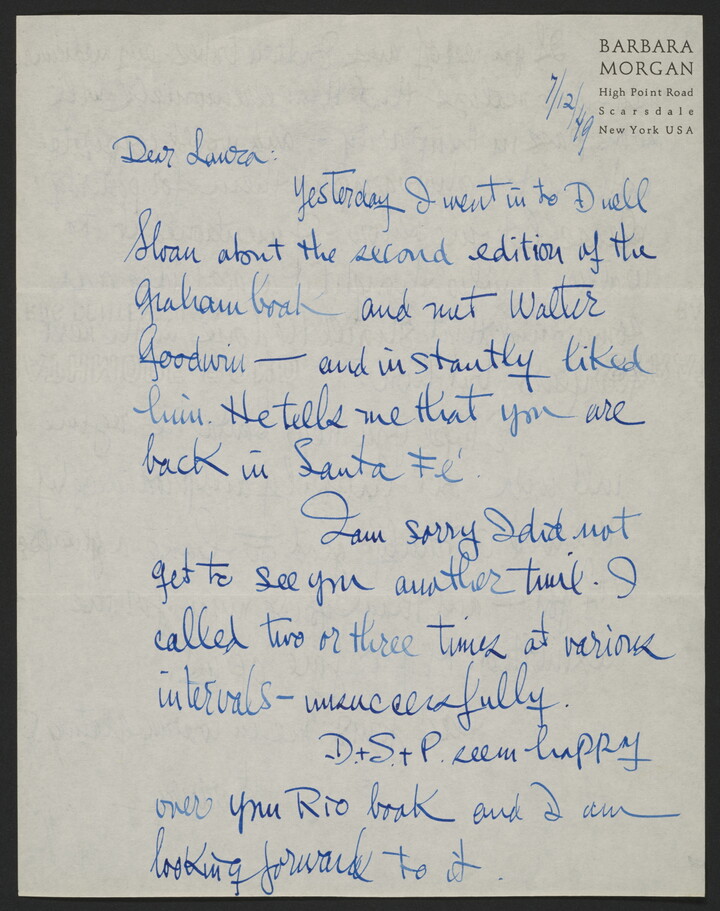 BARBARA
MORGAN
High Point Road
Scarsdale
New York USA
7/12/49
Dear Laura:
Yesterday I went in to Duell
Sloan about the second edition of the
Graham book and met Walter
Goodwin — and instantly liked
him. He tells me that you are
back in Santa Fé.
I am sorry I did not
get to see you another time. I
called two or three times at various
intervals – unsuccessfully.
D.+S.+P. seem happy
over your Rio book and I am
looking forward to it.